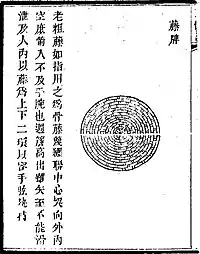 藤牌
老粗藤如指用之為骨藤篾纏聯中心突向外內
空庶箭入不及手腕也週簷高出雖矢至不能滑
泄及人內以藤為上下二環以容手肱執持